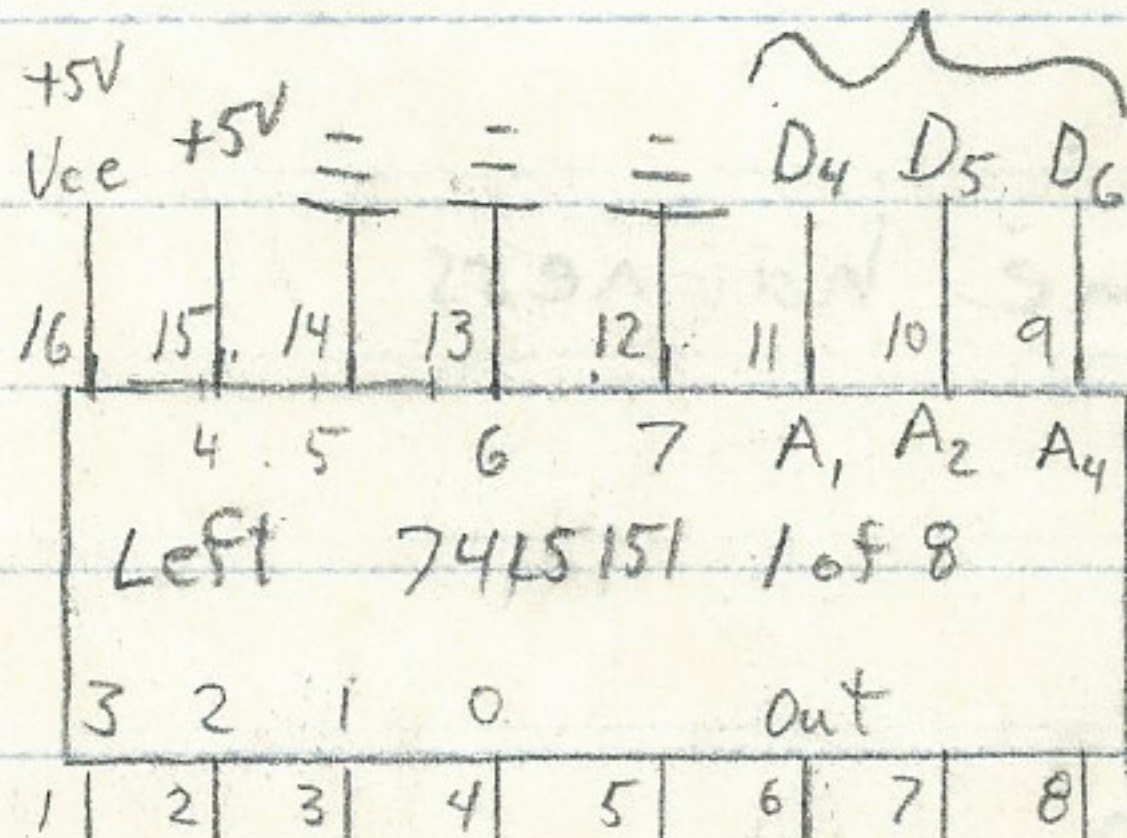 +5V
Vcc +5V D4 D5 D6
16 15 14 13 12 11 10 9
4 5 6 7 A1 A2 A4
Left 74LS151 1 of 8
3 2 1 0 Out
1 2 3 4 5 6 7 8